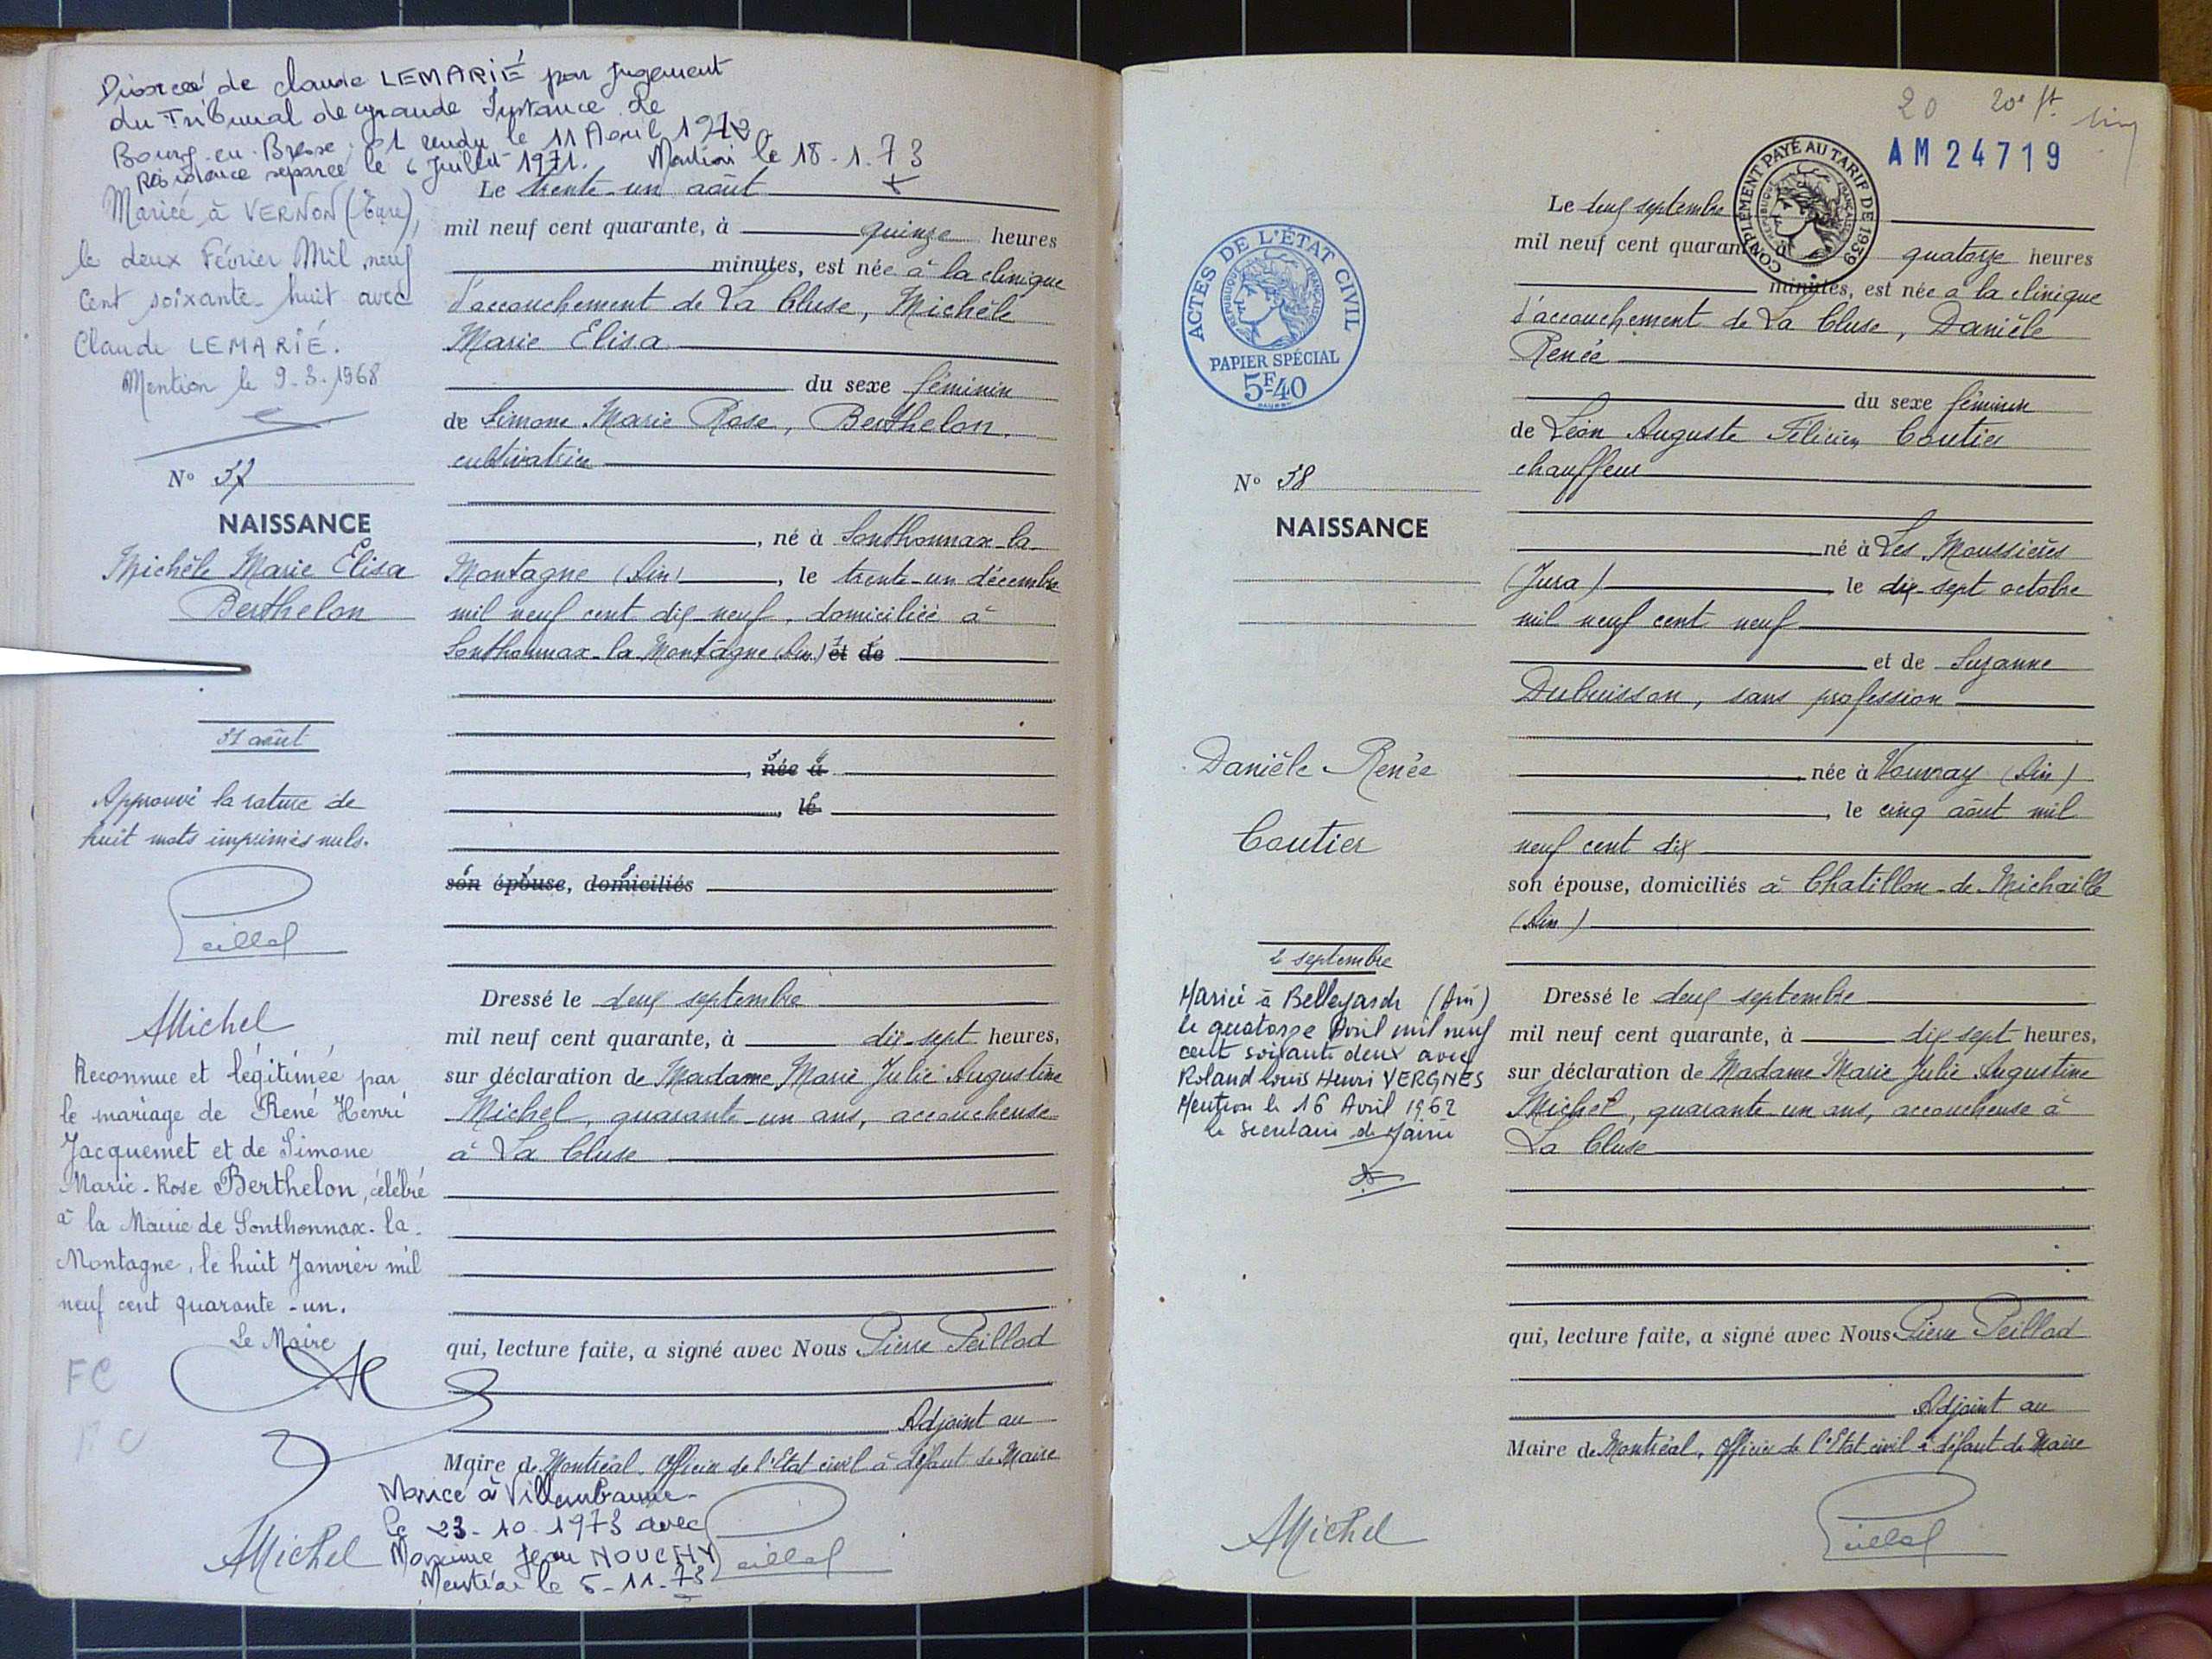 Divorcée de Claude LEMARIÉ par Jugement
du Tribunal de grande Instance de
Bourg-en-Bresse 01 rendu le 11 Avril 1972
Résidence séparée le 6 Juillet 1971. Mention le 18.1.73
Mariée à VERNON (Eure),
le deux Février Mil neuf
Cent soixante-huit avec
Claude LEMARIÉ.
Mention le 9.3.1968
No 37
NAISSANCE
Michèle Marie Elisa
Berthelon
31 août
Approuvé la rature de
huit mots imprimés nuls.
Peillod
AMichel
Reconnue et légitimée par
le mariage de René Henri
Jacquemet et de Simone
Marie-Rose Berthelon, célébré
à la Mairie de Sonthonnax-la-
Montagne, le huit Janvier mil
neuf cent quarante-un.
Le Maire
FC
Le trente-un août
mil neuf cent quarante, à quinze heures
minutes, est née à la clinique
d'accouchement de La Cluse, Michèle
Marie Elisa
du sexe féminin
de Simone Marie Rose, Berthelon,
cultivatrice
, né à Sonthonnax-la-
Montagne (Ain), le trente-un décembre
mil neuf cent dix-neuf, domiciliée à
Sonthonnax-la-Montagne (Ain) et de
, née à
, le
son épouse, domiciliés
Dressé le deux septembre
mil neuf cent quarante, à dix-sept heures,
sur déclaration de Madame Marie Julie Augustine
Michel, quarante-un ans, accoucheuse
à La Cluse
qui, lecture faite, a signé avec Nous Pierre Peillod
Adjoint au
Maire de Montréal, Officier de l'Etat civil à défaut de Maire
Mariée à Villeurbanne
le 23-10-1973 avec
Maxime Jean NOUCHY
Mention le 5-11-73
AMichel
Peillod
20 20e ft
AM 24719
COMPLÉMENT PAYÉ AU TARIF DE 1939
RÉPUBLIQUE FRANÇAISE
ACTES DE L'ÉTAT CIVIL
RÉPUBLIQUE FRANÇAISE
PAPIER SPÉCIAL
5F40
No 38
NAISSANCE
Danièle Renée
Coutier
2 septembre
Mariée à Bellegarde (Ain)
le quatorze Avril mil neuf
cent soixante deux avec
Roland Louis Henri VERGNES
Mention le 16 Avril 1962
Le Secrétaire de Mairie
Le deux septembre
mil neuf cent quarante, à quatorze heures
minutes, est née à la clinique
d'accouchement de La Cluse, Danièle
Renée
du sexe féminin
de Léon Auguste Félicien Coutier
chauffeur
né à Les Moussières
(Jura) le dix-sept octobre
mil neuf cent neuf
et de Suzanne
Dubuisson, sans profession
née à Vouvray (Ain)
, le cinq août mil
neuf cent dix
son épouse, domiciliés à Chatillon-de-Michaille
(Ain)
Dressé le deux septembre
mil neuf cent quarante, à dix sept heures,
sur déclaration de Madame Marie Julie Augustine
Michel, quarante-un ans, accoucheuse à
La Cluse
qui, lecture faite, a signé avec Nous Pierre Peillod
Adjoint au
Maire de Montréal, Officier de l'Etat civil à défaut de Maire
AMichel
Peillod